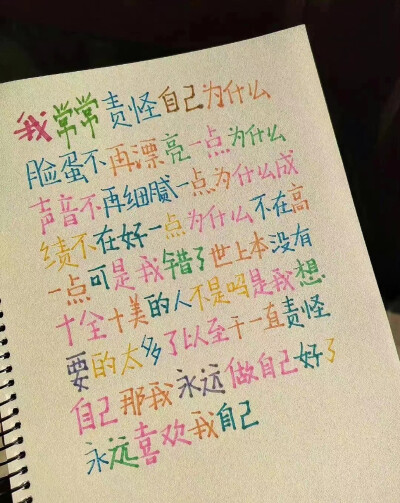 我常常责怪自己为什么
脸蛋不再漂亮一点为什么
声音不再细腻一点为什么成
绩不在好一点为什么不在高
一点可是我错了世上本没有
十全十美的人不是吗是我想
要的太多了以至于一直责怪
自己那我永远做自己好了
永远喜欢我自己